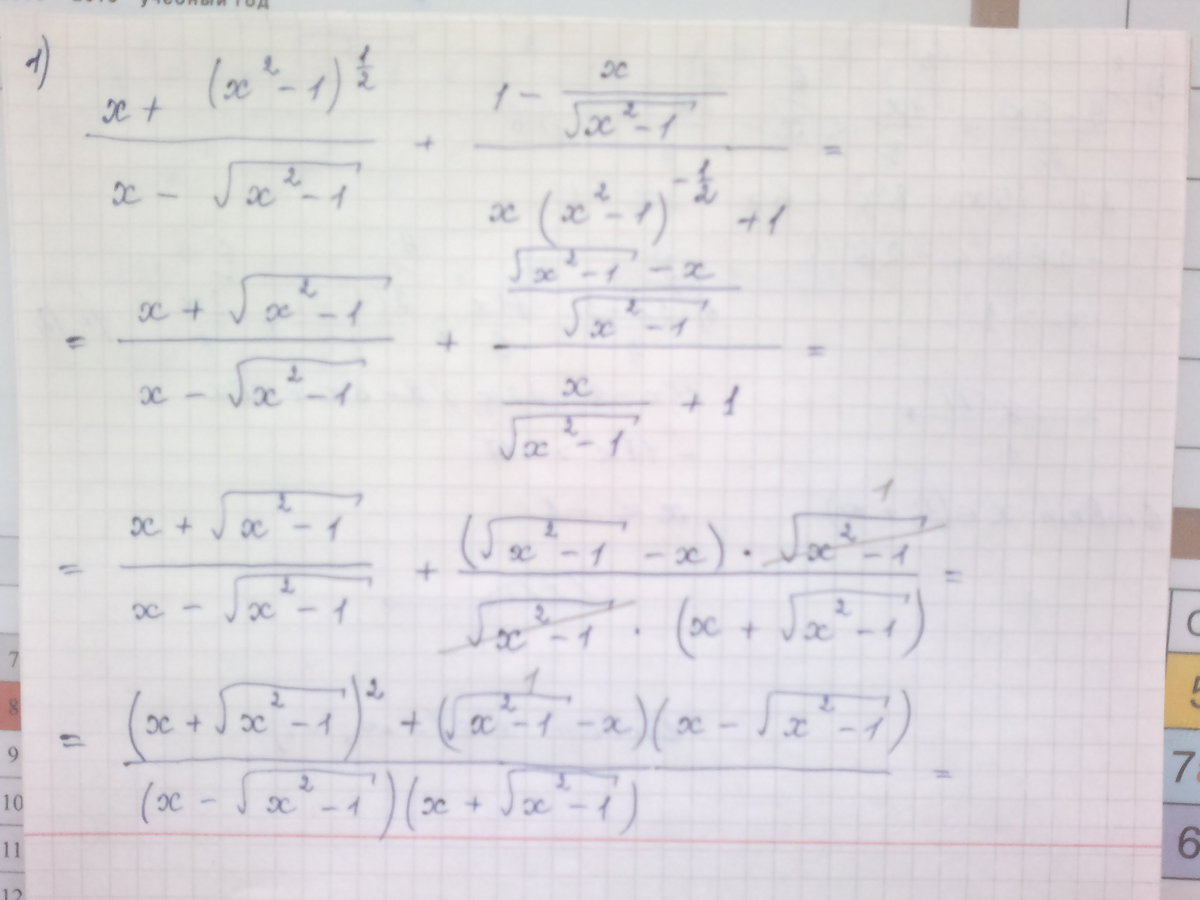 учебный год
1) (x + (x² - 1)^(1/2)) / (x - √(x² - 1)) + (1 - x/√(x² - 1)) / (x(x² - 1)^(-1/2) + 1) =
= (x + √(x² - 1)) / (x - √(x² - 1)) + ((√(x² - 1) - x)/√(x² - 1)) / (x/√(x² - 1) + 1) =
= (x + √(x² - 1)) / (x - √(x² - 1)) + ((√(x² - 1) - x) · √(x² - 1) 1) / (√(x² - 1) 1 · (x + √(x² - 1))) =
= ((x + √(x² - 1))² + (√(x² - 1) - x)(x - √(x² - 1))) / ((x - √(x² - 1))(x + √(x² - 1))) =
7
8
9
10
11
12
5
7
6